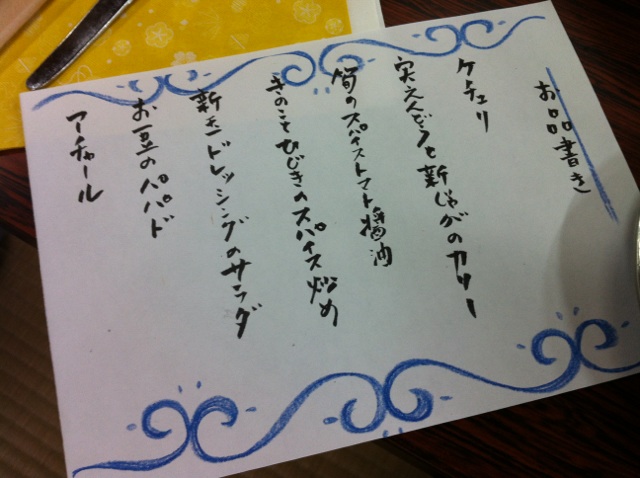 お品書き
ケチェリ
実えんどうと新じゃがのカリー
筍のスパイストマト醤油
きのことひじきのスパイス炒め
新玉ドレッシングのサラダ
お豆のパパド
アチャール